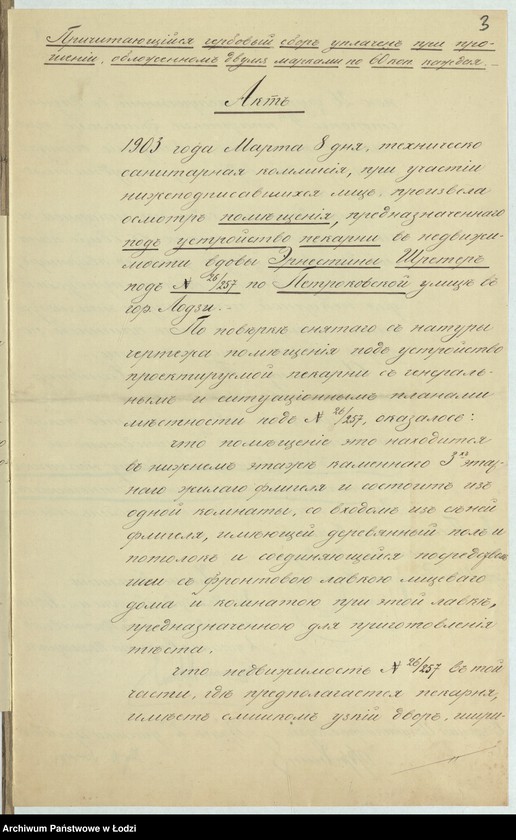 3
Причитающійся гербовый сборъ уплаченъ при про-
шеніи, обложенномъ двумя марками по 60 коп. каждая.
Актъ
1903 года Марта 8 дня, техническо
санитарная коммисія, при участіи
нижеподписавшихся лицъ, произвела
осмотръ помѣщенія, предназначеннаго
подъ устройство пекарни въ недвижи-
мости вдовы Эрнестины Шретеръ
подъ № 26/257 по Петроковской улицѣ въ
гор. Лодзи.
По повѣркѣ снятаго съ натуры
чертежа помѣщенія подъ устройство
проектируемой пекарни съ генераль-
нымъ и ситуаціоннымъ планами
мѣстности подъ № 26/257, оказалось:
что помѣщеніе это находится
въ нижнемъ этажѣ каменнаго 3хъ этаж-
наго жилаго флигеля и состоитъ изъ
одной комнаты, со входомъ изъ сѣней
флигеля, имѣющей деревянный полъ и
потолокъ и соединяющейся посредствен-
съ фронтовою лавкою лицеваго
дома и комнатою при этой лавкѣ,
предназначенною для приготовленія
тѣста.
что недвижимость № 26/257 въ той
части, гдѣ предполагается пекарня,
имѣетъ слишкомъ узкій дворъ, шири-
Archiwum Państwowe w Łodzi